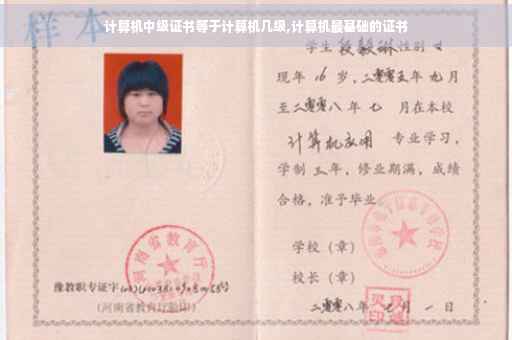 样本
计算机中级证书等于计算机几级,计算机最基础的证书
学生段毅琳性别女
现年16岁,二零零五年九月
至二零零八年七月在本校
计算机应用 专业学习,
学制三年,修业期满,成绩
合格,准予毕业
学校(章)
校长(章)
河南省教育厅
豫教职专证字
(河南省教育厅验印)
二零零八年 月一日